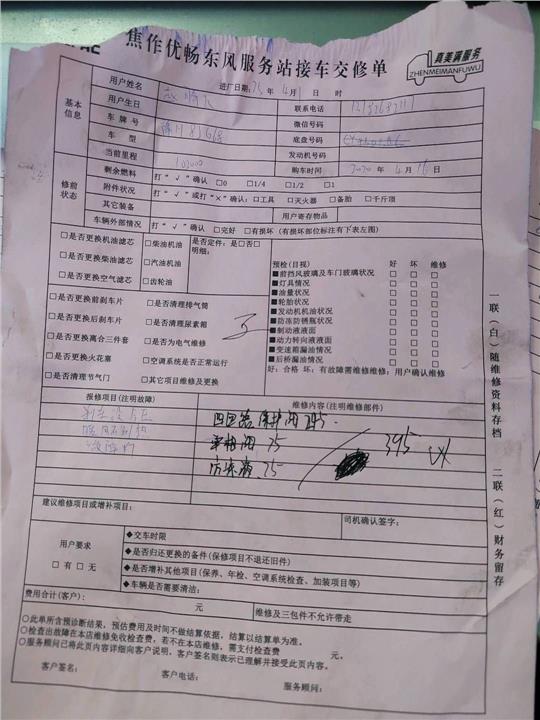 焦作优畅东风服务站接车交修单
真美满服务
ZHENMEIMANFUWU
进厂日期: 年 4月 日 时
基本信息
用户姓名
联系电话
用户生日
微信号码
车牌号
底盘号码
车型
发动机号码
当前里程 102000
购车时间 2020 年 4 月 16 日
修前状态
剩余燃料 打“√”确认 □0 □1/4 □1/2 □1
附件状况 打“√”或打“×”确认:□工具 □灭火器 □备胎 □千斤顶
其它装备
用户寄存物品
车辆外部情况 打“√”确认 □完好 □有损坏(有损坏部位标注有下表左图)
□是否更换机油滤芯 □柴油机油 是否定件: 是□否□
明细:
□是否更换柴油滤芯 □汽油机油
□是否更换空气滤芯 □齿轮油
□是否更换前刹车片 □是否清理排气筒
□是否更换后刹车片 □是否清理尿素箱
□是否更换离合三件套 □是否为电气维修
□是否更换火花塞 □空调系统是否正常运行
□是否清理节气门 □其它项目维修及更换
预检(目视) 好 坏 维修
■前挡风玻璃及车门玻璃状况 □ □ □
■灯具情况 □ □ □
■油量状况 □ □ □
■轮胎状况 □ □ □
■发动机机油状况 □ □ □
■防冻防锈瓶状况 □ □ □
■制动液液面 □ □ □
■动力转向液液面 □ □ □
■变速箱漏油情况 □ □ □
■后桥漏油情况 □ □ □
好:合格 坏:有故障需维修维修:用户确认维修
报修项目(注明故障)
维修内容(注明维修部件)
245
75
75
395
建议维修项目或增补项目:
司机确认签字:
用户要求
□有 □无
◆交车时限
◆是否归还更换的备件(保修项目不退还旧件)
◆是否增补其他项目(保养、年检、空调系统检查、加装项目等)
◆车辆是否需要清洁:
费用合计(客户): 元
维修及三包件不允许带走
○此单所含预诊断结果,预估费用及时间不做结算依据,结算以结算单为准。
○检查出故障在本店维修免收检查费,若不在本店维修,需支付检查费 元。
○服务顾问已将此页内容详细向客户说明,客户签名则表示已理解并接受此页内容。
客户签名: 客户电话: 服务顾问:
一联(白)随维修资料存档 二联(红)财务留存